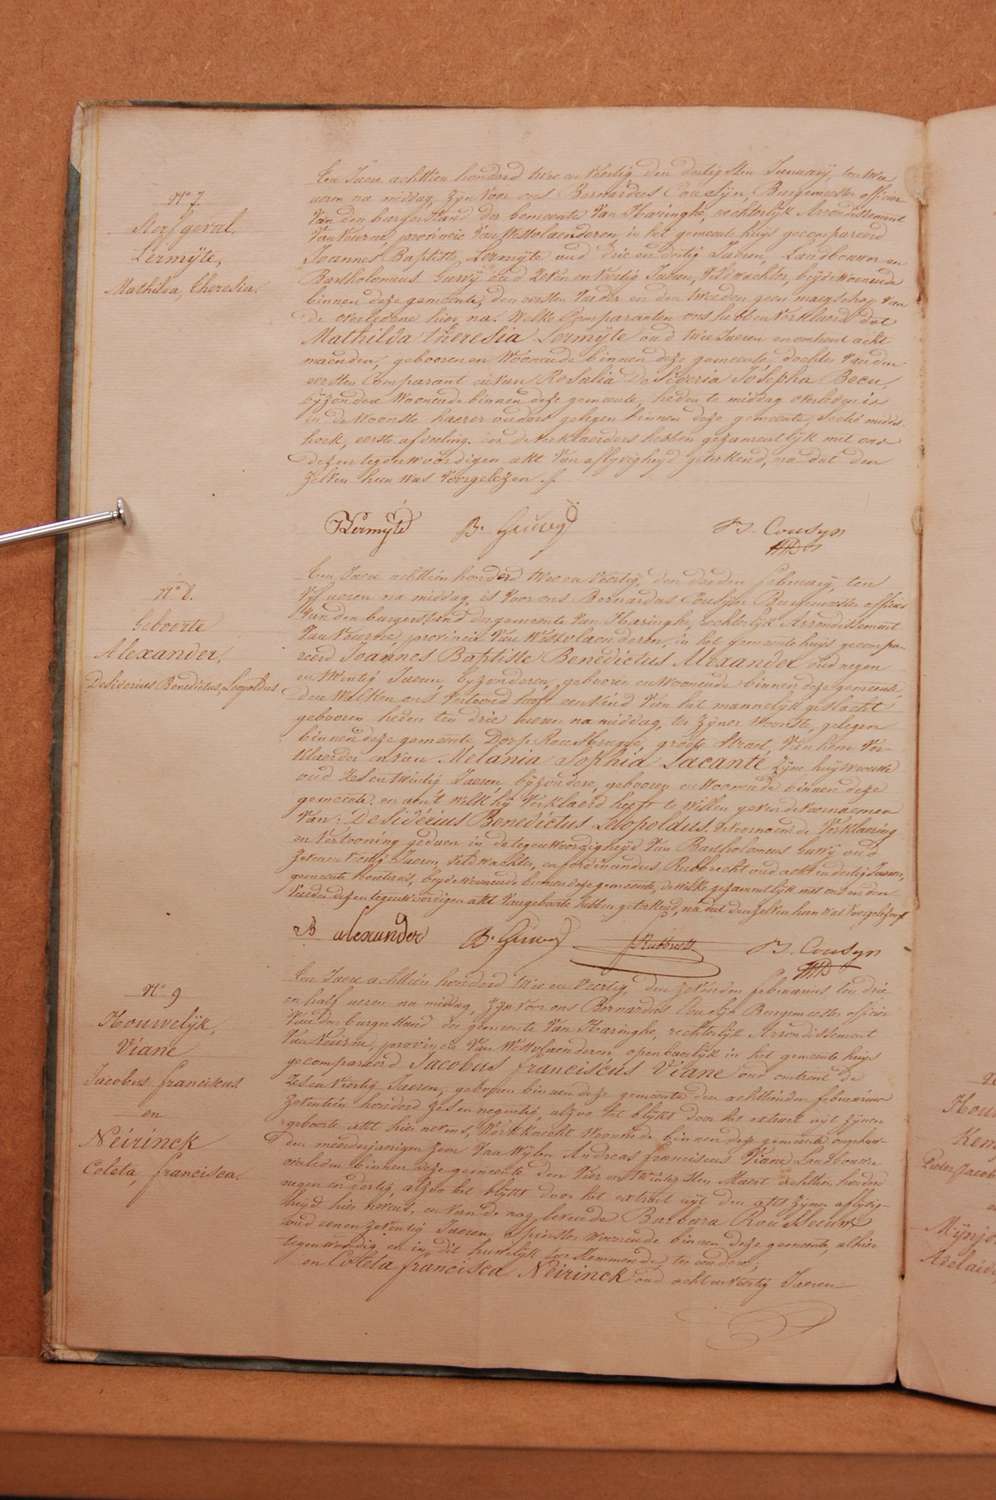 N° 7
Sterfgeval
Lermÿte,
Mathilda, theresia.
Een Jaere achttien honderd twee en veertig den dertigsten January, ten twee
uren na middag, zyn voor ons Bernardus Cousÿn, Burgemeester officier
Van den burgerstand der gemeente Van Haringhe, rechterlyk Arrondissement
Van Veurne, provincie Van Westvlaenderen, in het gemeente huys gecompareerd
Joannes Baptiste, Lermÿte oud drie en dertig Jaeren, Landbouwer en
Bartholomeus Geusÿ oud zeven en veertig Jaeren, Veldwachter, beyde woonende
binnen deze gemeente, den eersten Vader en den tweeden geen maegschap Van
de overledene hier na. Welke Comparanten ons hebben verklaerd dat
Mathilda theresia Lermÿte oud twee Jaeren en ontrent acht
maenden, gebooren en woonende binnen deze gemeente, dochter Van den
eersten Comparant en Van Rosalia De Séveria Joséphia Becu,
byzondere woonende binnen deze gemeente, heden te middag overleden is
in de wooste haerer ouders gelegen binnen deze gemeente, Sectie
hoek, eerste afdeeling. en de verklaerders hebben gezamentlyk met ons
dezen tegenwoordigen akt Van aflyvigheyd geteekend, na dat den
zelven hun was voorgelezen.
Lermÿte B. Geusÿ B. Cousyn
N° 8.
Geboorte
Alexander,
Desiderius Benedictus, Leopoldus
Een Jaere achttien honderd twee en veertig, den derden february, ten
Vyf ueren na middag, is voor ons Bernardus Cousÿn Burgemeester officier
Van den burgerstand der gemeente Van Haringhe, rechterlyk Arrondissement
Van Veurne, provincie Van Westvlaenderen, in het gemeente huys gecompa-
reerd Joannes Baptiste Benedictus Alexander oud negen
en twintig Jaeren, byzonderen, gebooren en woonende binnen deze gemeente
den welken ons vertoond heeft een kind Van het mannelyk geslacht
gebooren heden ten drie ueren na middag, te zyner wooste, gelegen
binnen deze gemeente, Dorp Rousbrugge, groote straet, Van hem Ver-
klaerder en van Melania Sophia Lacante zyne huysvrouwe
oud zes en twintig Jaeren, byzondere, gebooren en woonende binnen deze
gemeente. en aen't welk hy Verklaerd heeft te willen geven de voornaemen
Van: Desidérius Benedictus Leopoldus. de voornoemde Verklaering
en Vertooning gedaen in de tegenwoordigheyd Van Bartholomeus Geusÿ oud
zeven en veertig Jaeren, Veldwachter, en ferdinandus Rubbrecht oud acht en dertig Jaeren,
gemeente beyde woonende binnen deze gemeente, de welke gezamentlyk met ons en den
Vader dezen tegenwoordigen akt Van geboorte hebben geteekend, na dat denzelven hun was voorgelezen
B alexander B. Geusÿ f. Rubbrecht B. Cousyn
N° 9
Houwelÿk,
Viane
Jacobus franciscus
en
Neirinck
Coleta, francisca.
Een Jaere achttien honderd twee en veertig, den zevensten februarius ten drie
en half ueren na middag, zyn voor ons Bernardus Cousÿn Burgemeester officier
Van den burgerstand der gemeente Van Haringhe, rechterlyk Arrondissement
Van Veurne, provincie Van Westvlaenderen, openbaerlyk in het gemeente huys
gecompareerd Jacobus franciscus Viane oud ontrent de
zes en veertig Jaeren, gebooren binnen deze gemeente den achttienden februarius
zeventien honderd zes en negentig, alzoo het blykt door het extract uyt zynen
geboorte akt hier nevens, Werkknecht woonende binnen deze gemeente ongehuwd
den meerderjarigen zoon Van wylen Andreas franciscus Viane Landbouwer
overleden binnen deze gemeente den Vier en twintigsten Maert achttien honderd
negen en dertig, alzoo het blykt door het extract uyt den akt zyner aflyvig-
heyd hier nevens, en van de nog levende Barbara Rousseeuw
oud een en zeventig Jaeren, Spinster woonende binnen deze gemeente, alhier
tegenwoordig, en in dit huwelyk toestemmende ter eender,
en Coleta francisca Neirinck oud acht en veertig Jaeren
Houw
Kem
Pieter Jacob
Mÿnj
Adelaid